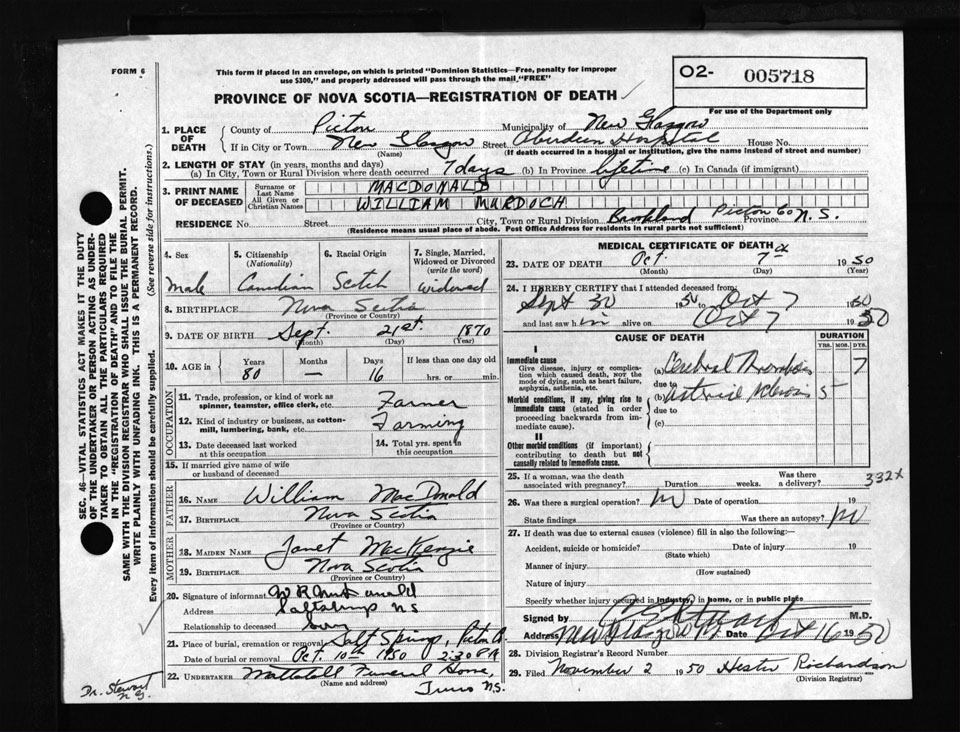 FORM 6
This form if placed in an envelope, on which is printed "Dominion Statistics—Free, penalty for improper
use $300," and properly addressed will pass through the mail, "FREE"
O2- 005718
For use of the Department only
PROVINCE OF NOVA SCOTIA—REGISTRATION OF DEATH
1. PLACE OF DEATH
County of Pictou Municipality of New Glasgow
If in City or Town New Glasgow Street Aberdeen Hospital House No.
(Name) (If death occurred in a hospital or institution, give the name instead of street and number)
2. LENGTH OF STAY (in years, months and days)
(a) In City, Town or Rural Division where death occurred 7 days (b) In Province lifetime (c) In Canada (if immigrant)
3. PRINT NAME OF DECEASED
Surname or Last Name MACDONALD
All Given or Christian Names WILLIAM MURDOCH
RESIDENCE No. Street City, Town or Rural Division Pictou Co Province N.S.
(Residence means usual place of abode. Post Office Address for residents in rural parts not sufficient)
4. Sex Male
5. Citizenship (Nationality) Canadian
6. Racial Origin Scotch
7. Single, Married, Widowed or Divorced (write the word) Widowed
8. BIRTHPLACE Nova Scotia
(Province or Country)
9. DATE OF BIRTH Sept. 21st. 1870
(Month) (Day) (Year)
10. AGE in Years 80 Months — Days 16 If less than one day old
hrs. or min.
OCCUPATION
11. Trade, profession, or kind of work as
spinner, teamster, office clerk, etc. Farmer
12. Kind of industry or business, as cotton-
mill, lumbering, bank, etc. Farming
13. Date deceased last worked
at this occupation
14. Total yrs. spent in
this occupation
15. If married give name of wife
or husband of deceased
FATHER
16. NAME William MacDonald
17. BIRTHPLACE Nova Scotia
(Province or Country)
MOTHER
18. MAIDEN NAME Janet MacKenzie
19. BIRTHPLACE Nova Scotia
(Province or Country)
20. Signature of informant
Address Saltsprings NS
Relationship to deceased Son
21. Place of burial, cremation or removal Salt Springs, Pictou Co.
Date of burial or removal Oct. 10th 1950 2:30 P
22. UNDERTAKER Mattatall Funeral Home,
(Name and address) Truro N.S.
MEDICAL CERTIFICATE OF DEATH
23. DATE OF DEATH Oct. 7th 1950
(Month) (Day) (Year)
24. I HEREBY CERTIFY that I attended deceased from:
Sept 30 1950 to Oct 7 1950
and last saw him alive on Oct 7 1950
CAUSE OF DEATH
DURATION
YRS. MOS. DYS.
I
Immediate cause
Give disease, injury or complica-
tion which caused death, NOT the
mode of dying, such as heart failure,
asphyxia, asthenia, etc.
(a) Cerebral Thrombosis 7
due to
Morbid conditions, if any, giving rise to
immediate cause (stated in order
proceeding backwards from im-
mediate cause).
(b) sclerosis 5
due to
(c)
II
Other morbid conditions (if important)
contributing to death but not
causally related to immediate cause.
25. If a woman, was the death
associated with pregnancy? Duration weeks. Was there
a delivery? 332X
26. Was there a surgical operation? no Date of operation 19
State findings Was there an autopsy? no
27. If death was due to external causes (violence) fill in also the following:—
Accident, suicide or homicide? Date of injury 19
(State which)
Manner of injury
(How sustained)
Nature of injury
Specify whether injury occurred in industry, in home, or in public place
Signed by Stewart M.D.
Address New Glasgow NS Date Oct 16 1950
28. Division Registrar's Record Number
29. Filed November 2 1950 Hester Richardson
(Division Registrar)
SEC. 46—VITAL STATISTICS ACT MAKES IT THE DUTY
OF THE UNDERTAKER OR PERSON ACTING AS UNDER-
TAKER TO OBTAIN ALL THE PARTICULARS REQUIRED
IN THE "REGISTRATION OF DEATH" AND TO FILE THE
SAME WITH THE DIVISION REGISTRAR WHO SHALL ISSUE THE BURIAL PERMIT.
WRITE PLAINLY WITH UNFADING INK. THIS IS A PERMANENT RECORD.
Every item of information should be carefully supplied. (See reverse side for instructions.)
Dr. Stewart
N.G.